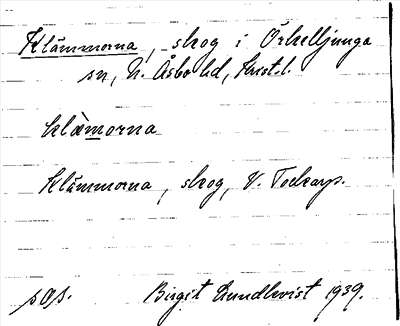 Klämmorna, skog i Örkelljunga
sn, N. Åsbo hd, Krist. l.
klæ̀morna
Klämmorna, skog, V. Tockarp.
sOs. Birgit Lundkvist 1939.